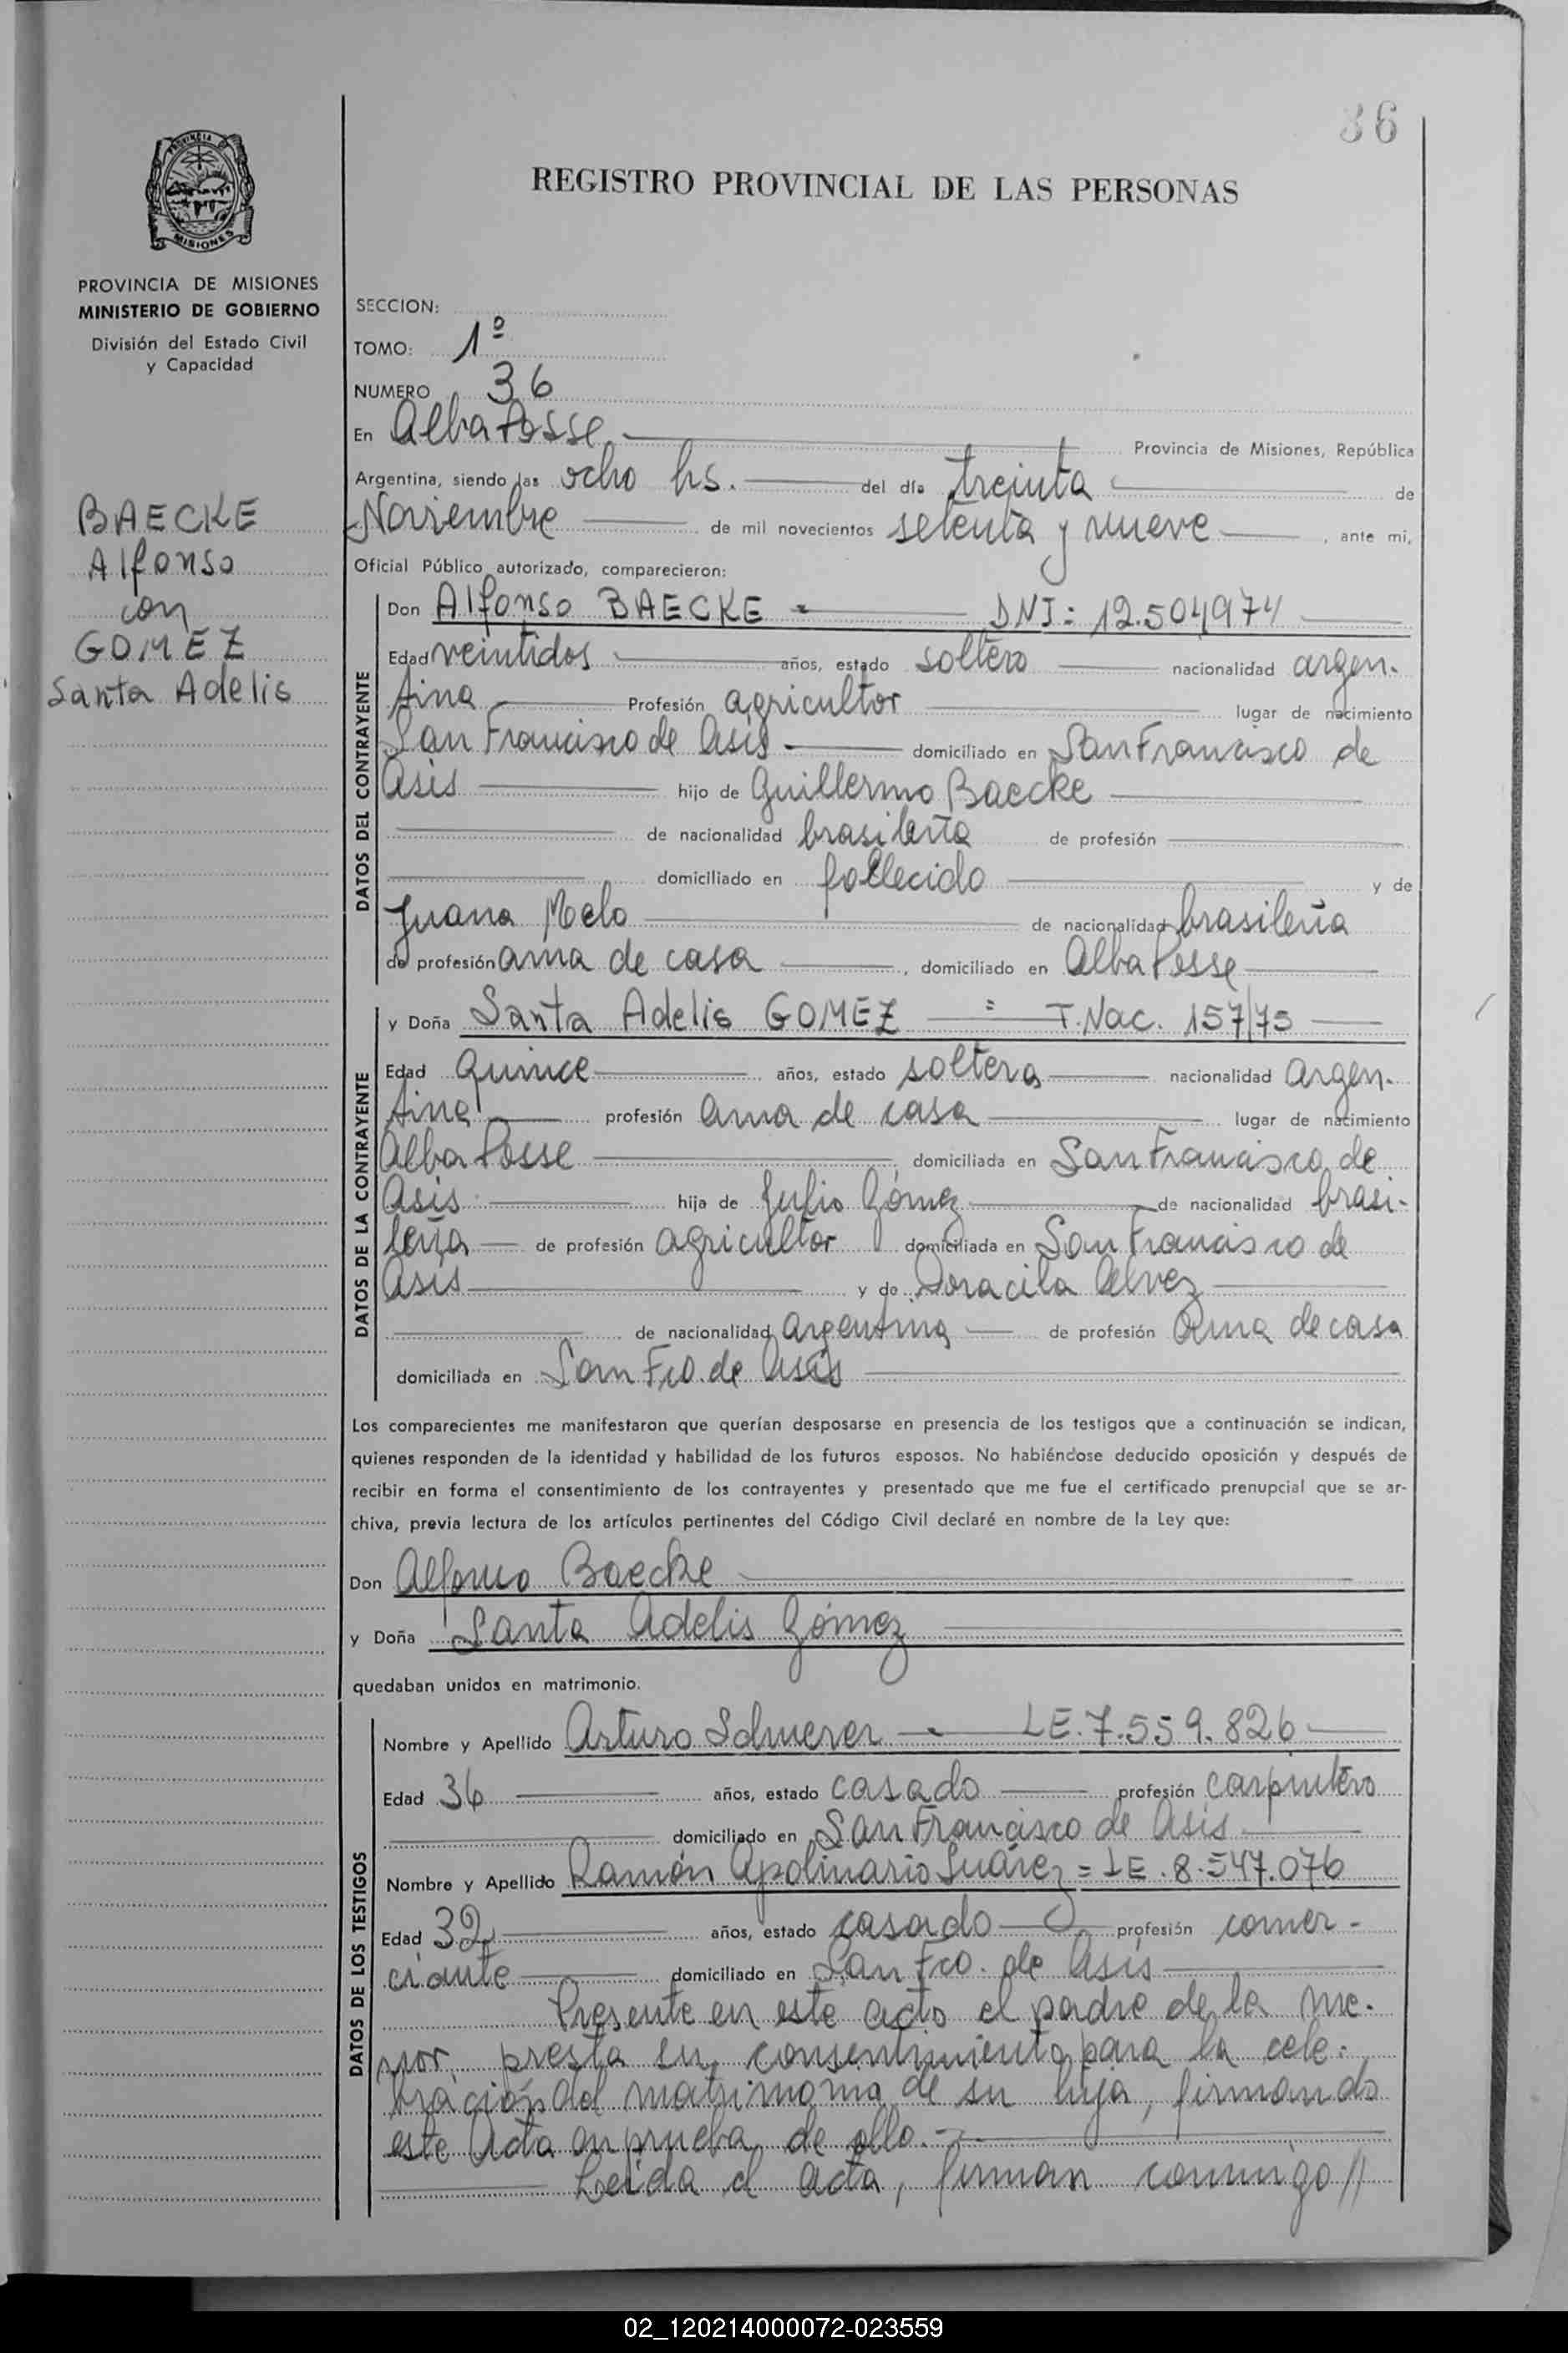 36
REGISTRO PROVINCIAL DE LAS PERSONAS
PROVINCIA DE MISIONES
PROVINCIA DE MISIONES
MINISTERIO DE GOBIERNO
División del Estado Civil
y Capacidad
BAECKE
Alfonso
con
GOMEZ
Santa Adelis
SECCION:
TOMO: 1º
NUMERO 36
En Alba Posse Provincia de Misiones, República
Argentina, siendo las ocho hs. del día treinta de
Noviembre de mil novecientos setenta y nueve, ante mi,
Oficial Público autorizado, comparecieron:
DATOS DEL CONTRAYENTE
Don Alfonso BAECKE DNI: 12.504974
Edad veintidos años, estado soltero nacionalidad argen-
tina Profesión agricultor lugar de nacimiento
San Francisco de Asis domiciliado en San Francisco de
Asis hijo de Guillermo Baecke
de nacionalidad brasileña de profesión
domiciliado en fallecido y de
Juana Melo de nacionalidad brasileña
de profesión ama de casa, domiciliado en Alba Posse
DATOS DE LA CONTRAYENTE
y Doña Santa Adelis GOMEZ = T. Nac. 157/75
Edad quince años, estado soltera nacionalidad argen-
tina profesión ama de casa lugar de nacimiento
Alba Posse, domiciliada en San Francisco de
Asis hija de Julio Gómez de nacionalidad brasi-
leña de profesión agricultor domiciliada en San Francisco de
Asis y de Doracila Alvez
de nacionalidad argentina de profesión ama de casa
domiciliada en San Fco. de Asis
Los comparecientes me manifestaron que querían desposarse en presencia de los testigos que a continuación se indican,
quienes responden de la identidad y habilidad de los futuros esposos. No habiéndose deducido oposición y después de
recibir en forma el consentimiento de los contrayentes y presentado que me fue el certificado prenupcial que se ar-
chiva, previa lectura de los artículos pertinentes del Código Civil declaré en nombre de la Ley que:
Don Alfonso Baecke
y Doña Santa Adelis Gómez
quedaban unidos en matrimonio.
DATOS DE LOS TESTIGOS
Nombre y Apellido Arturo LE. 7.559.826
Edad 36 años, estado casado profesión carpintero
domiciliado en San Francisco de Asis
Nombre y Apellido Ramón Apolinario Suárez = LE. 8.547.076
Edad 32 años, estado casado profesión comer-
ciante domiciliado en San Fco. de Asis
Presente en este acto el padre de la me-
nor presta su consentimiento para la cele-
bración del matrimonio de su hija, firmando
este Acta en prueba de ello.-
Leida el acta, firman conmigo //
02_120214000072-023559